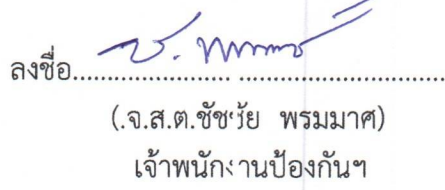 ลงชื่อ
(.จ.ส.ต.ชัชชัย พรมมาศ)
เจ้าพนักงานป้องกันฯ